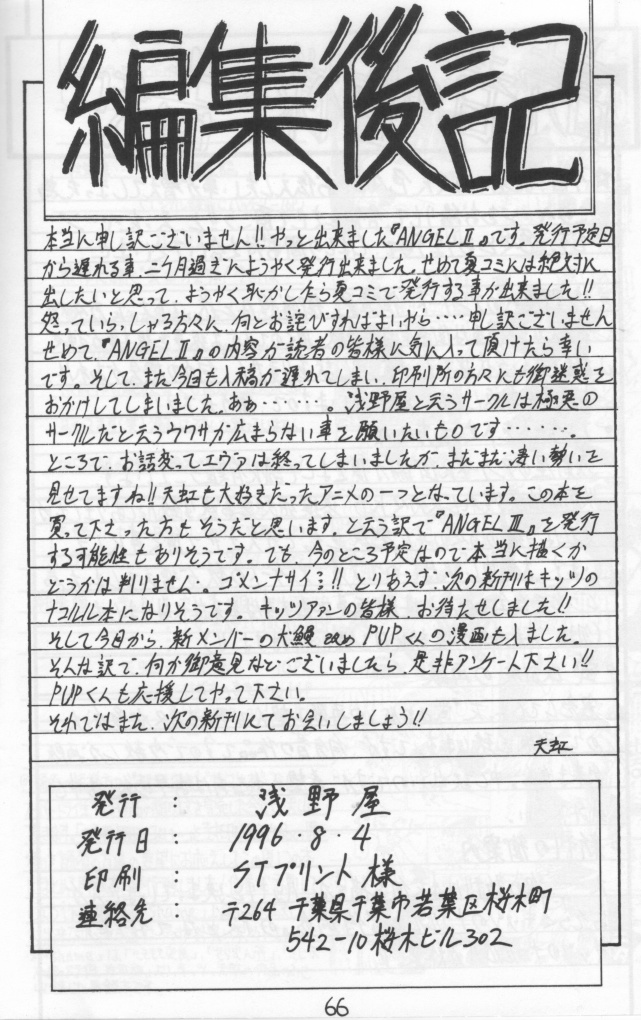 編集後記
本当に申し訳ございません!!やっと出来ました『ANGELⅡ』です。発行予定日
から遅れる事、二ヶ月過ぎにようやく発行出来ました。せめて夏コミには絶対に
出したいと思って、ようやく恥かしながら夏コミで発行する事が出来ました!!
怒っていらっしゃる方々に、何とお詫びすればよいやら‥‥申し訳ございません
せめて、『ANGELⅡ』の内容が読者の皆様に気に入って頂けたら幸い
です。そして、また今回も入稿が遅れてしまい、印刷所の方々にも御迷惑を
おかけしてしまいました。ああ‥‥‥‥。浅野屋と云うサークルは極悪の
サークルだと云うウワサが広まらない事を願いたいものです‥‥‥‥。
ところで、お話変ってエヴァは終ってしまいましたが、まだまだ凄い勢いを
見せてますね!!天虹も大好きだったアニメの一つとなっています。この本を
買って下さった方もそうだと思います。と云う訳で『ANGELⅢ』を発行
する可能性もありそうです。でも、今のところ予定なので本当に描くか
どうかは判りません。ゴメンナサイ!!とりあえず、次の新刊はキッツの
ナコルル本になりそうです。キッツファンの皆様、お待たせしました!!
そして今回から、新メンバーの犬鰻改めPUPくんの漫画も入ました。
そんな訳で、何か御意見などございましたら、是非アンケート下さい!!
PUPくんも応援してやって下さい。
それではまた、次の新刊にてお会いしましょう!!
天虹
発行 : 浅野屋
発行日 : 1996.8.4
印刷 : STプリント様
連絡先 : 〒264 千葉県千葉市若葉区桜木町
542-10桜木ビル302
66